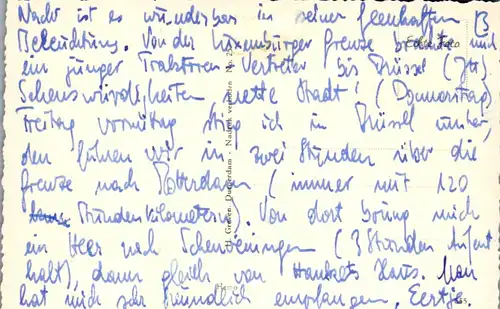 Nacht ist es wunderbar in seiner feenhaften
Beleuchtung. Von der Luxemburger Grenze brachte mich
ein junger Traktoren-Vertreter bis Brüssel
Sehenswürdigkeiten, nette Stadt! (Donnerstag)
Freitag vormittag stieg ich in Brüssel
den fuhren wir in zwei Stunden über die
Grenze nach Rotterdam (immer mit 120
Stundenkilometern). Von dort bring mich
ein Herr nach Scheveningen (3 Stunden Aufent
halt), dann gleich von Haus. Man
hat mich sehr freundlich empfangen, Eertje.